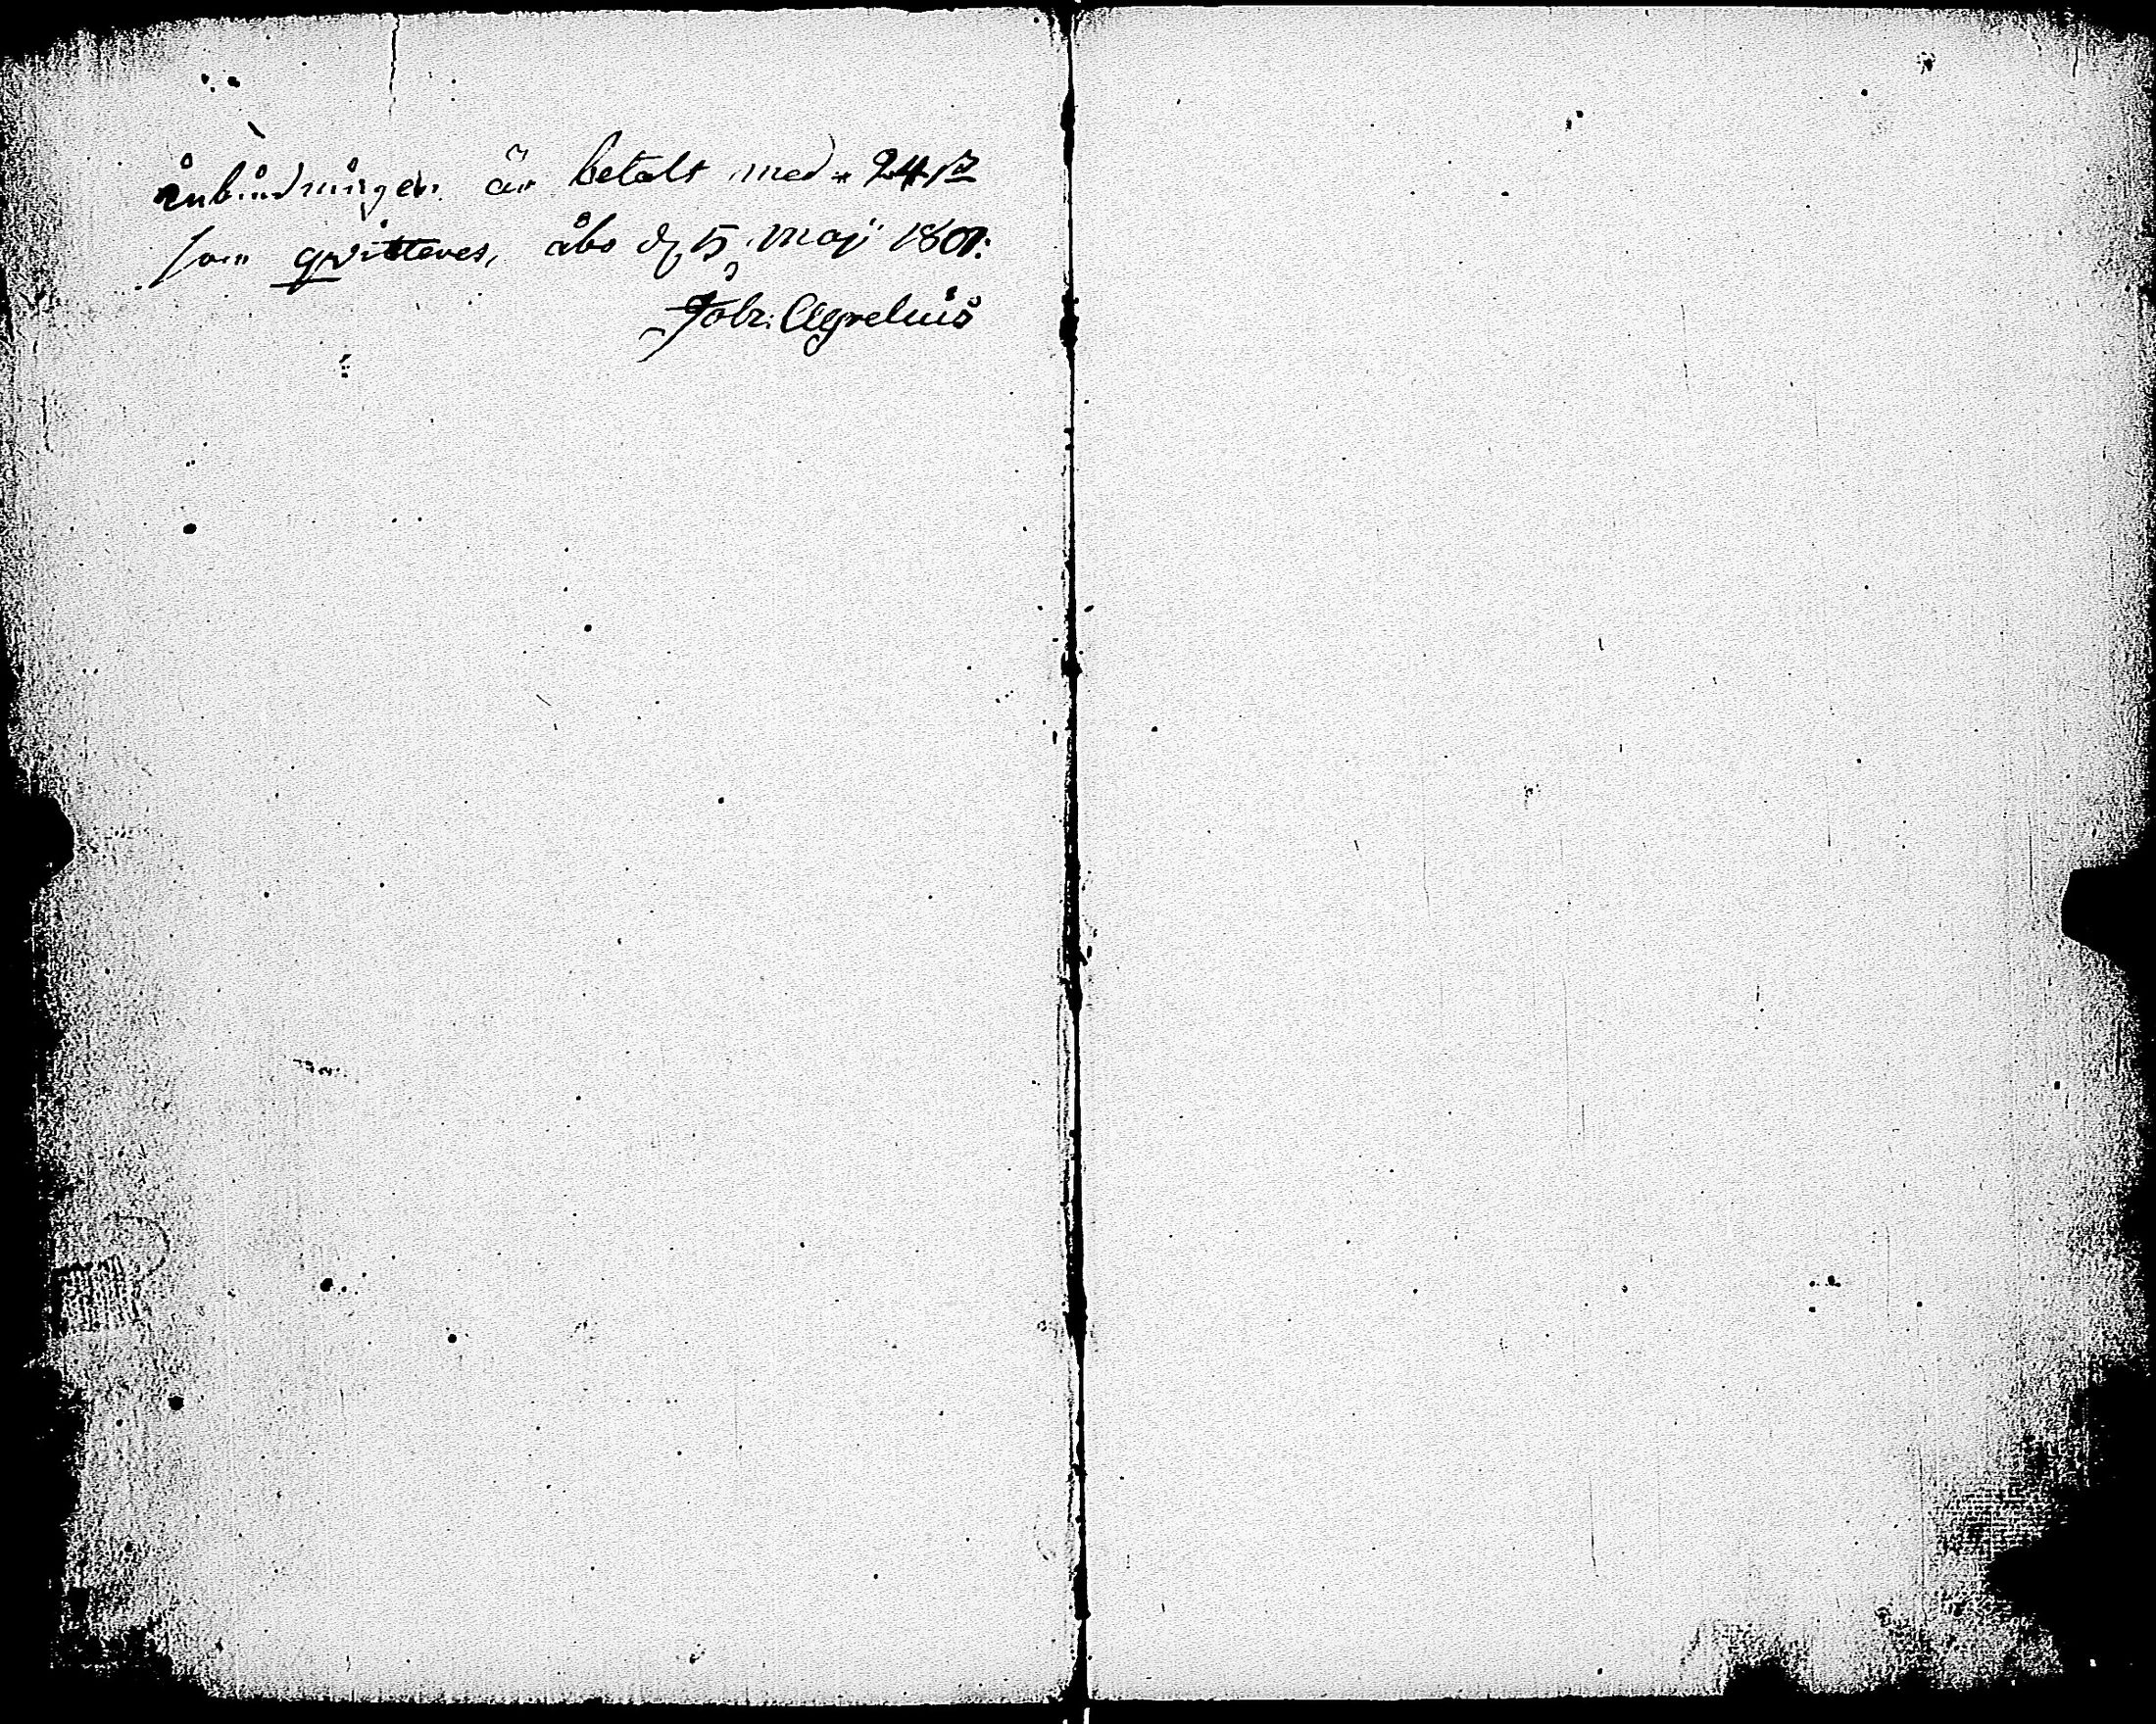 inbindningen är betalt med 24 ß
som qvitteres, åbo d 5 maji 1801.
Joh: Agrelius